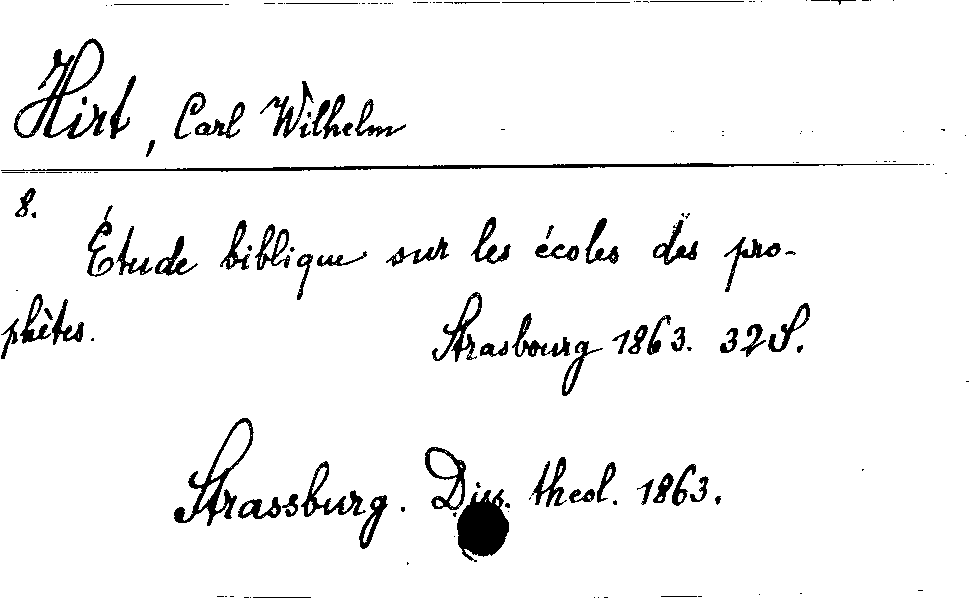 Hirt, Carl Wilhelm
8.
Étude biblique sur les écoles des pro-
phètes.
Strasbourg 1863. 32 S.
Strassburg. Diss. theol. 1863.